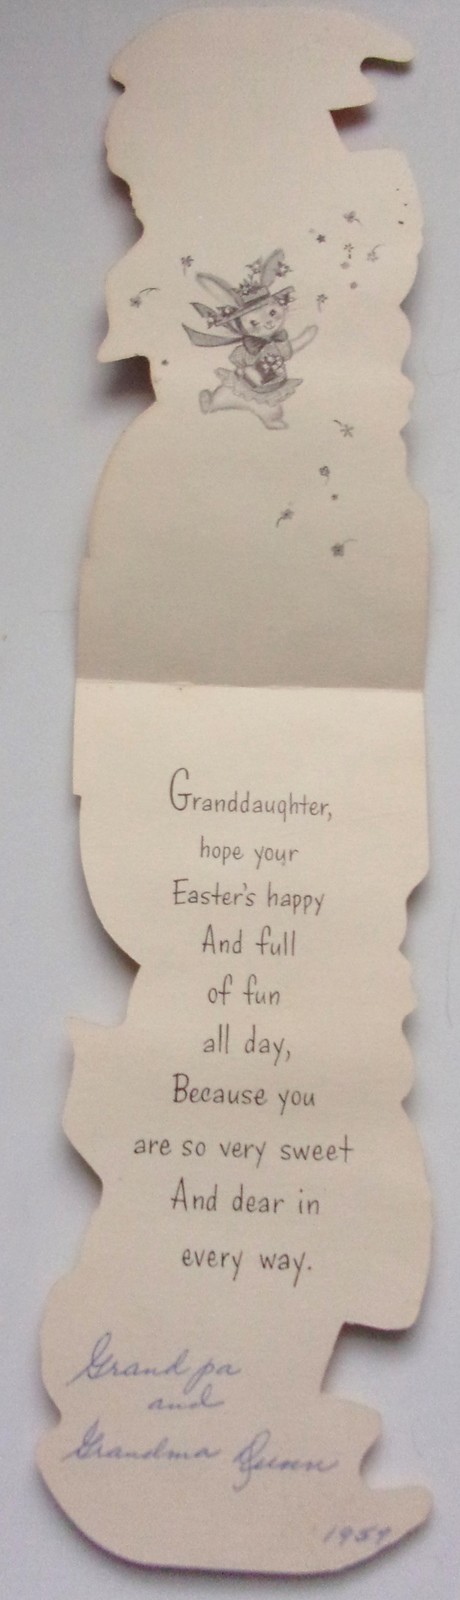 Granddaughter,
hope your
Easter's happy
And full
of fun
all day,
Because you
are so very sweet
And dear in
every way.
Grand pa
and
Grandma